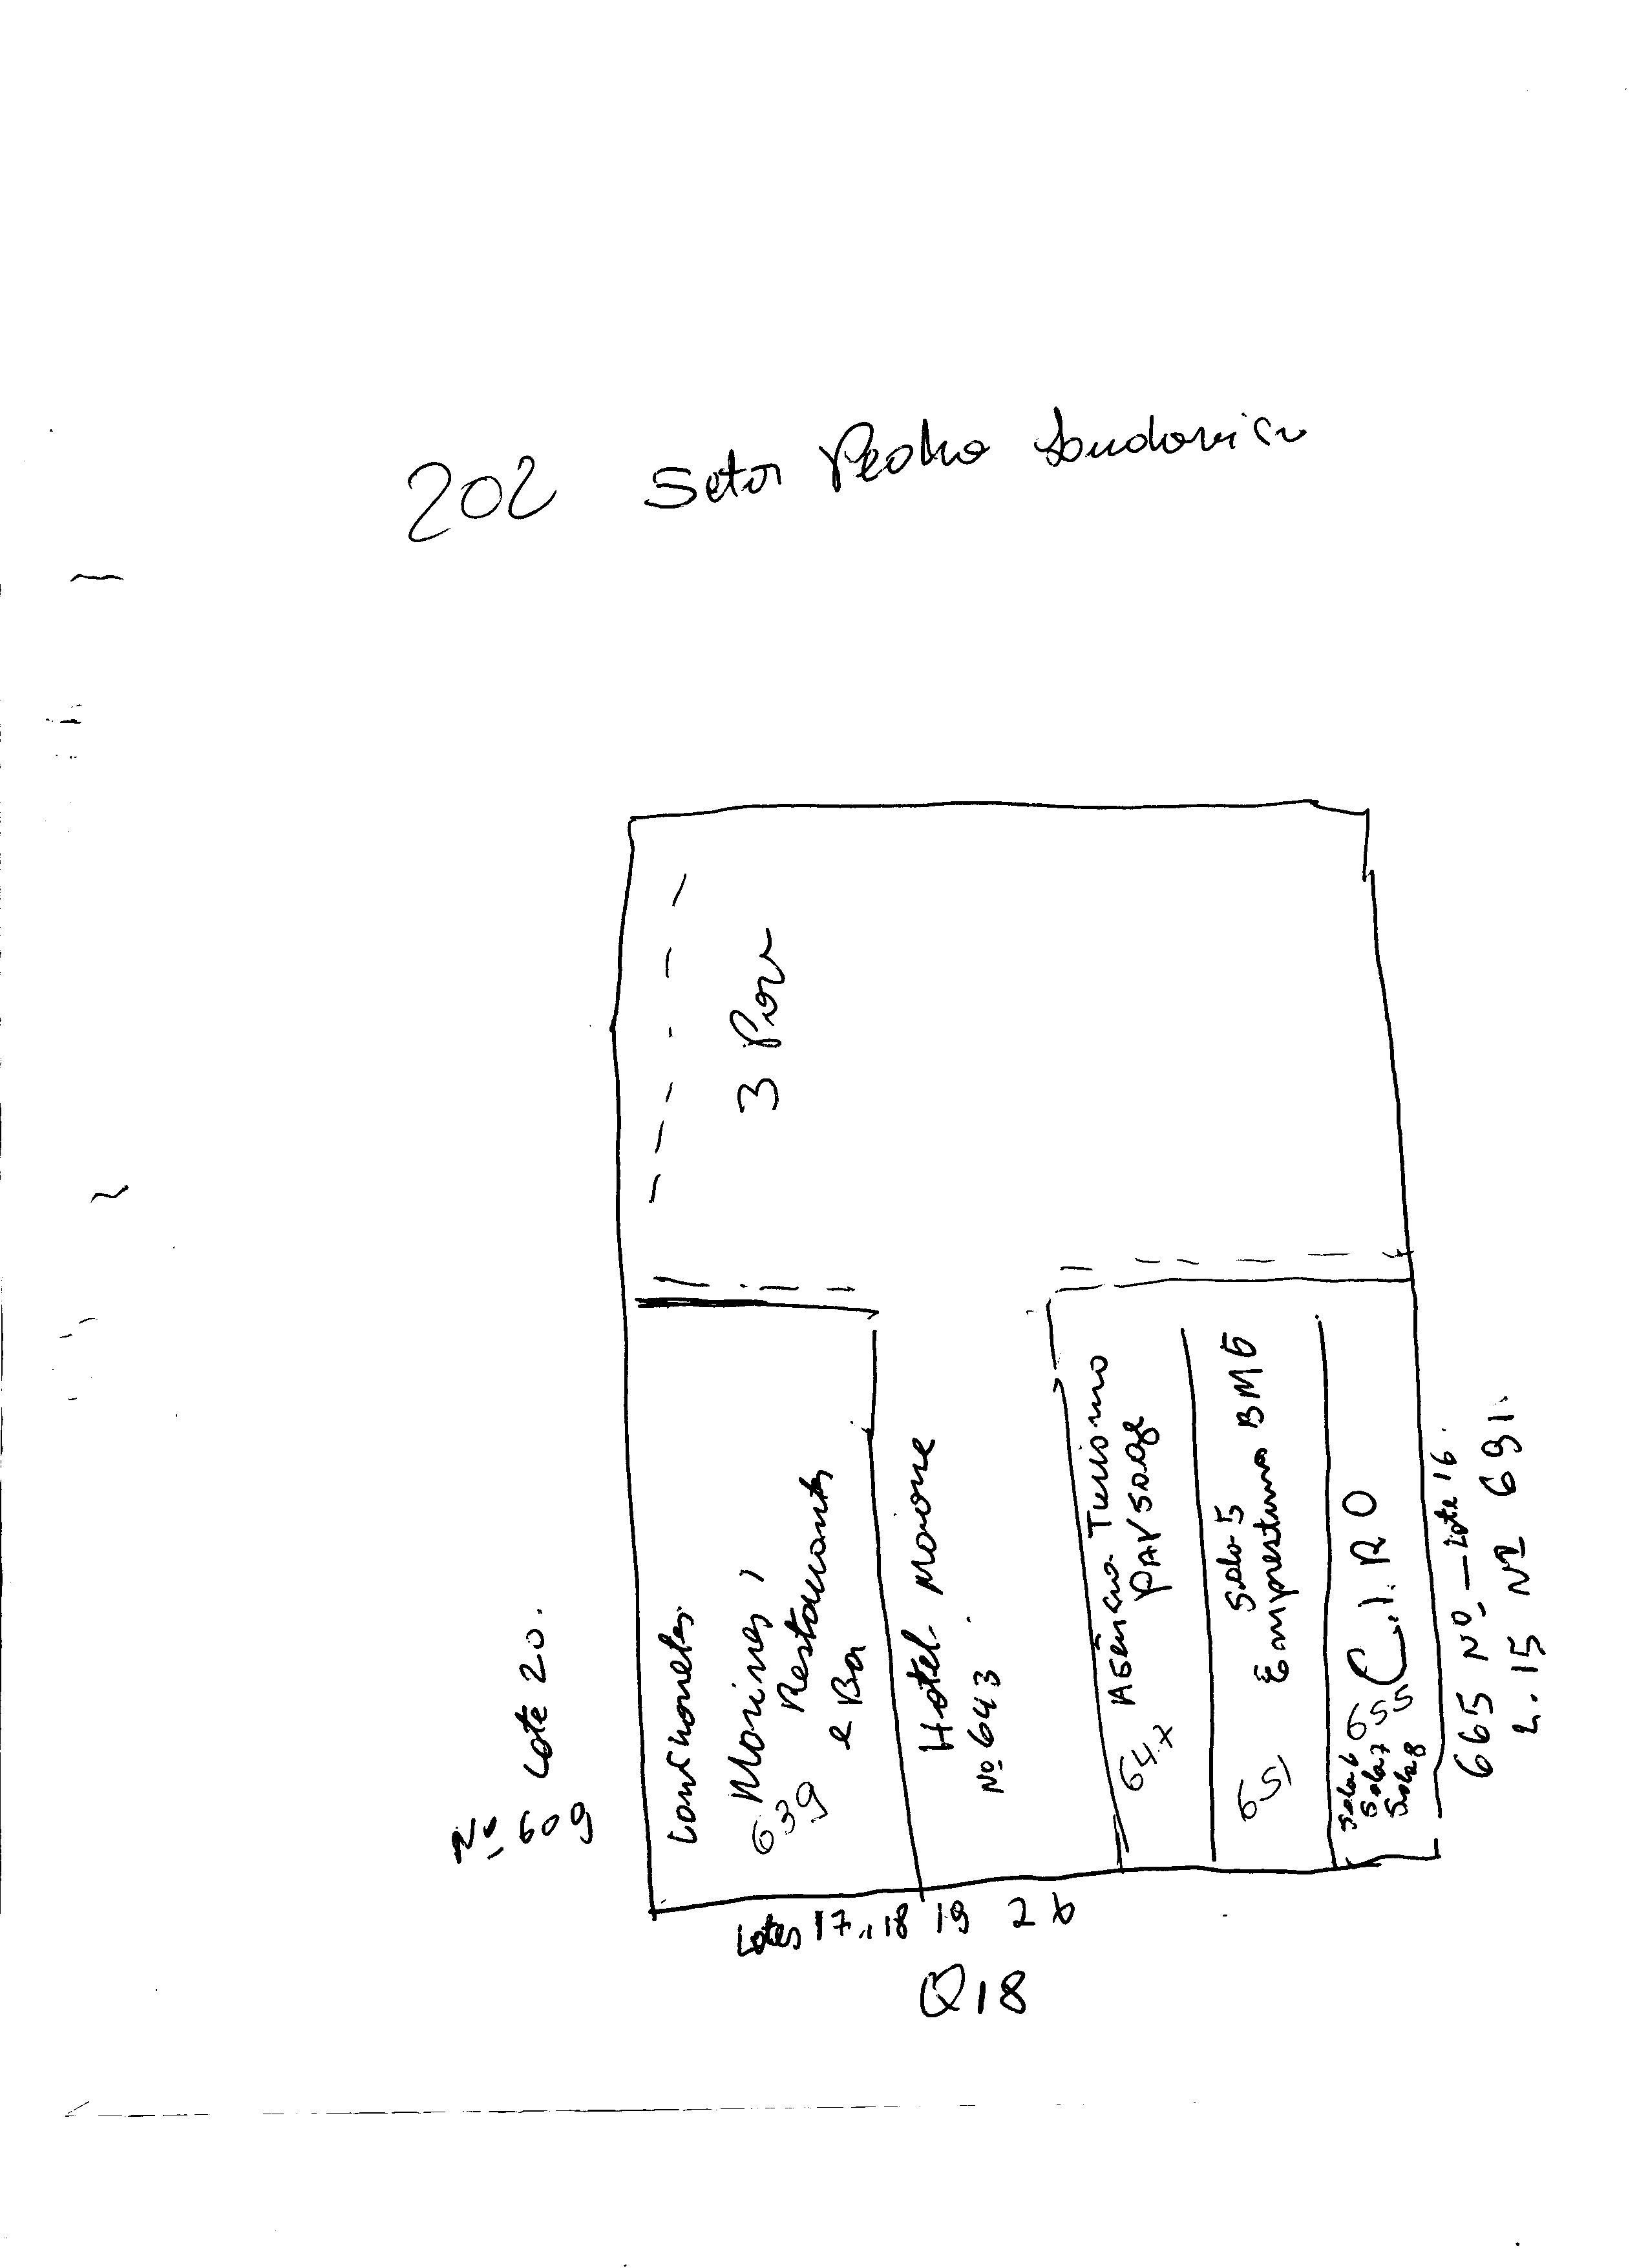 202 Setor Pedro Ludovico
3 Pav
Nº 609 Lote 20.
Lanchonetes
Marines,
Restaurante
e Bar
639
Hotel
Nº 643
Agência Turismo
647
Sala 5
Emprestimo BMG
651
Sala 6
Sala 7
Sala 8
655
C.I.R.O
665 Nº - Lote 16.
L. 15 Nº 691.
Lotes 17, 18 19 2
Q18